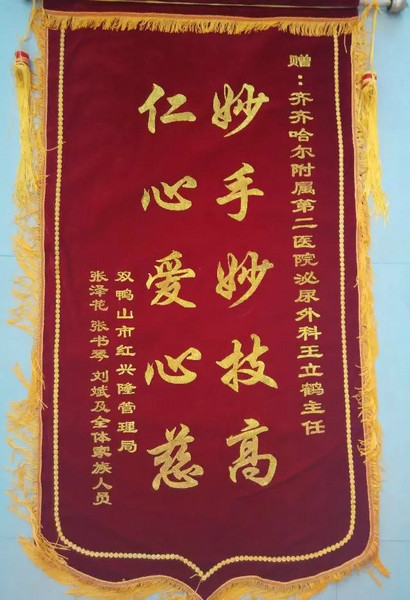 赠：齐齐哈尔附属第二医院泌尿外科王立鹤主任
妙手妙技高
仁心爱心慈
双鸭山市红兴隆管理局
张泽花 张书琴 刘斌及全体家族人员